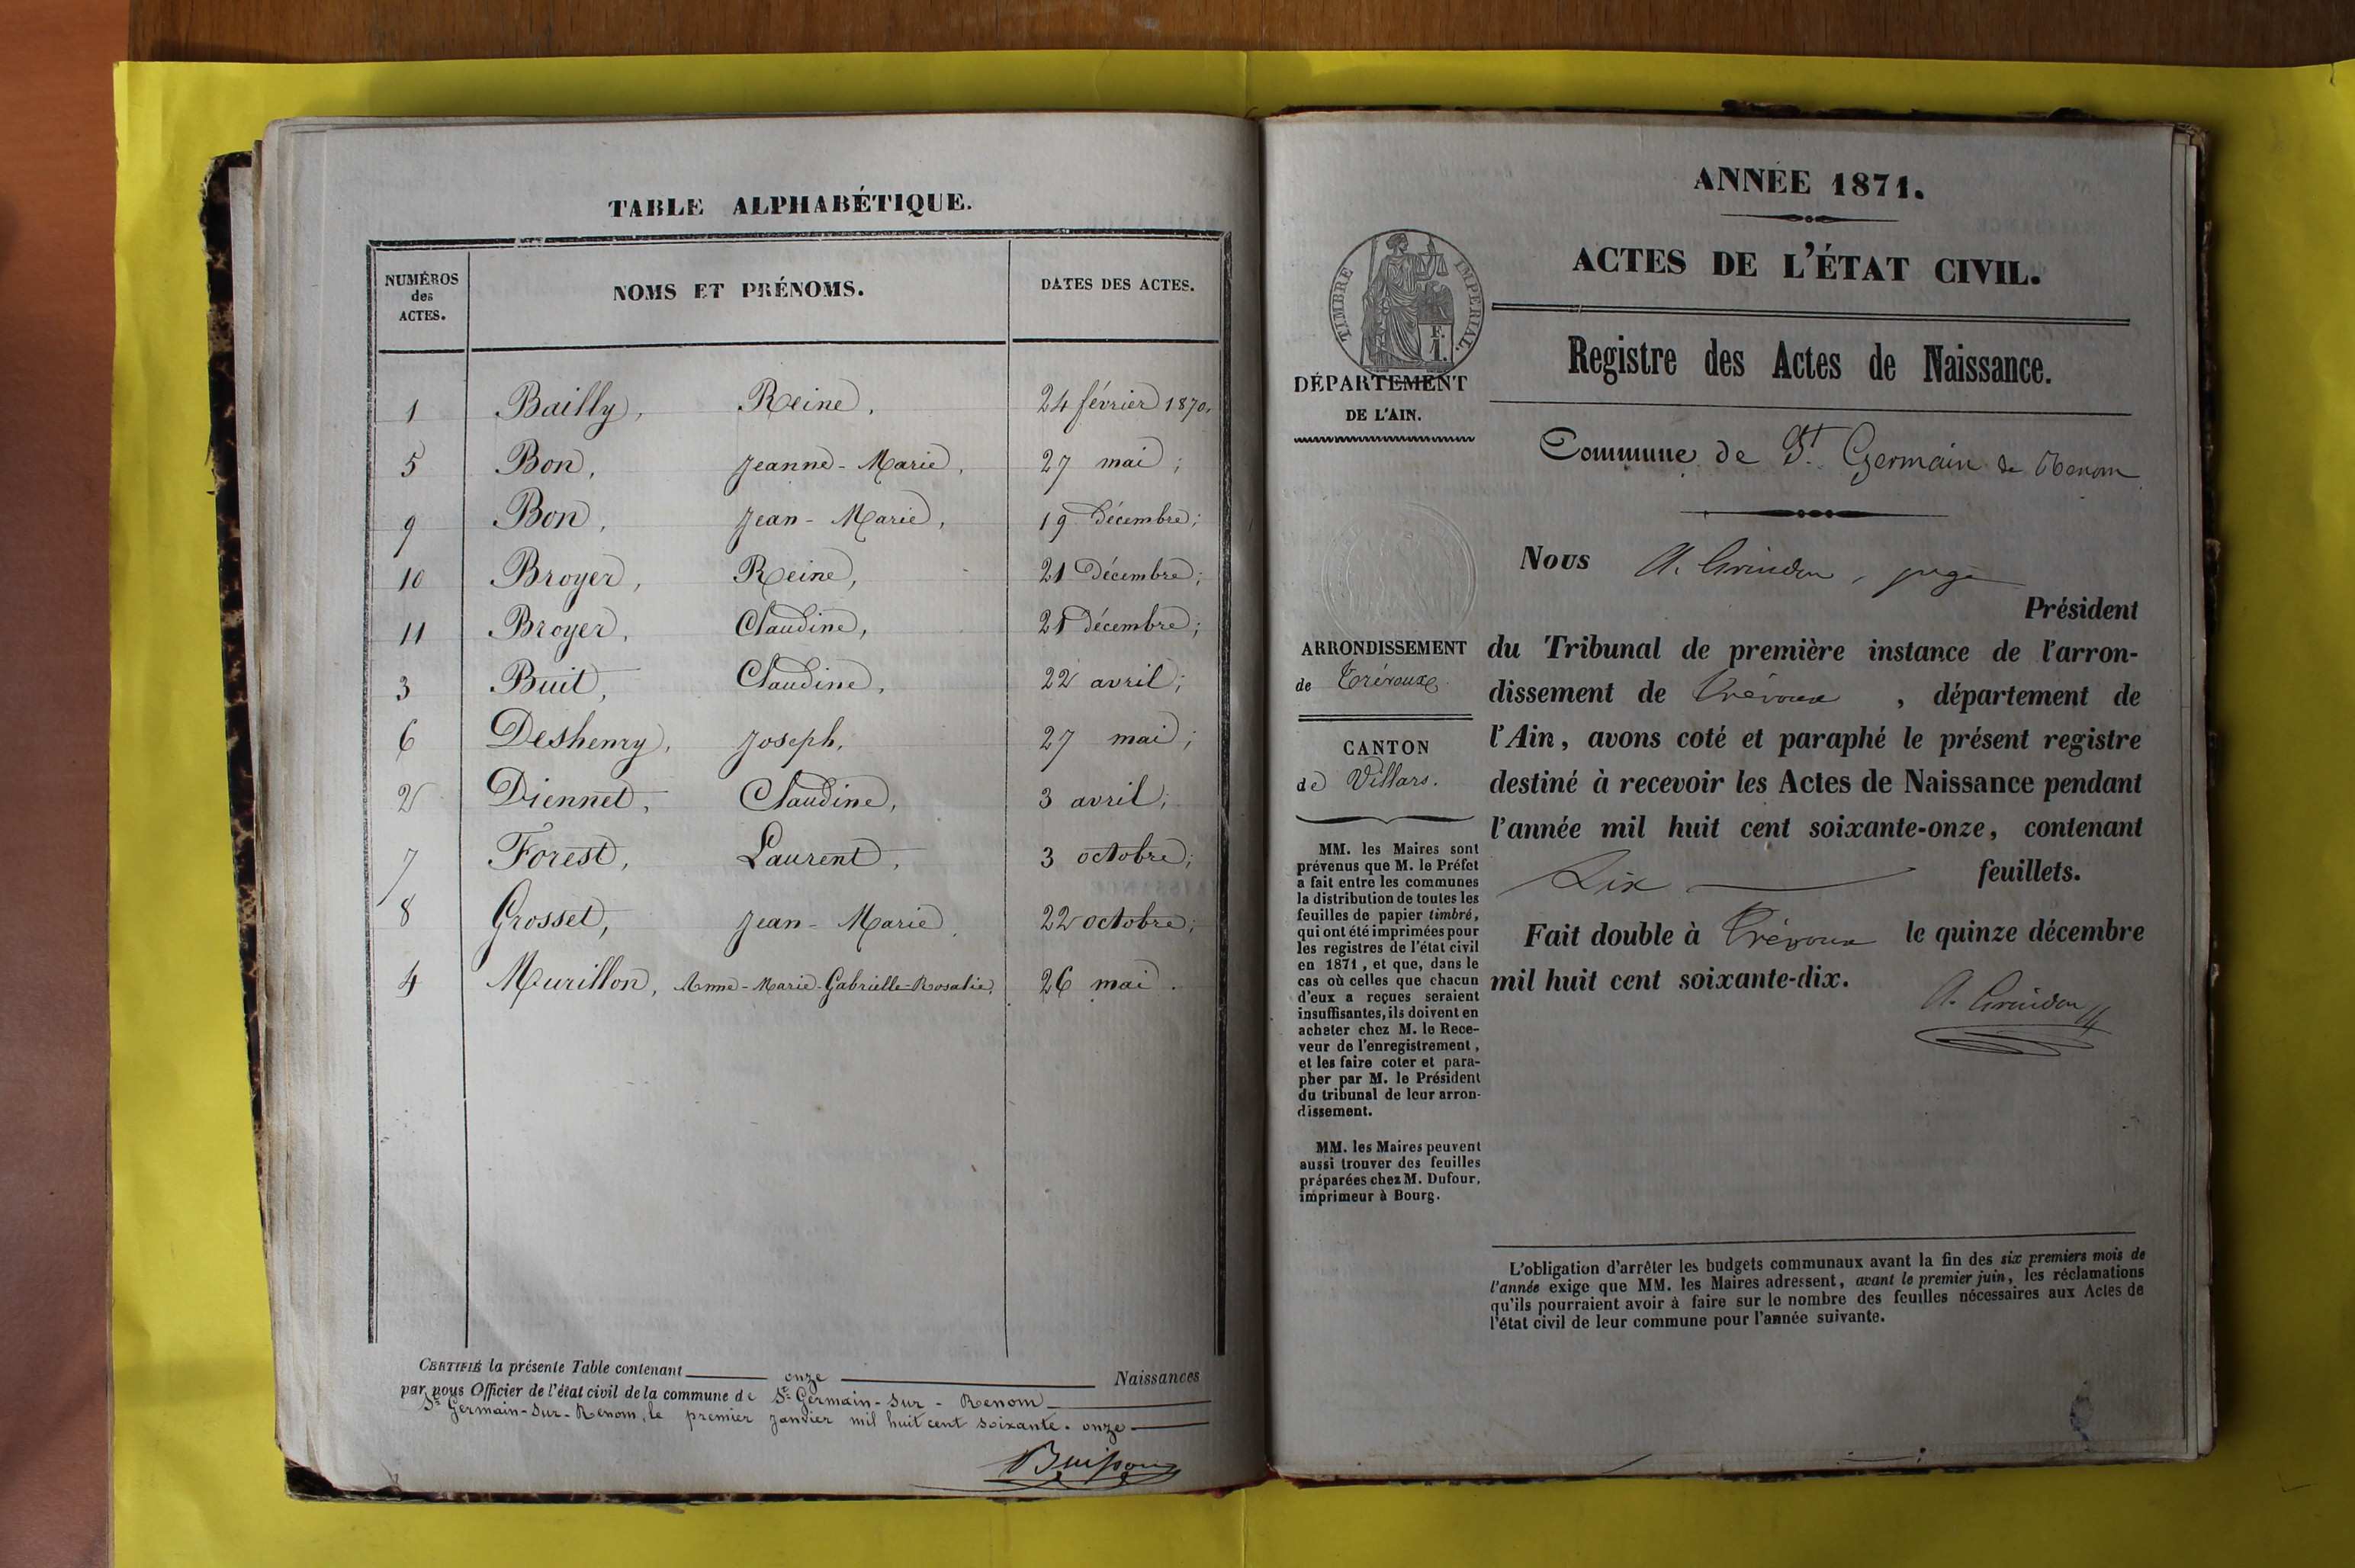 TABLE ALPHABÉTIQUE.
NUMÉROS des ACTES. NOMS ET PRÉNOMS. DATES DES ACTES.
1 Bailly, Reine, 24 février 1870,
5 Bon, Jeanne-Marie, 27 mai;
9 Bon, Jean-Marie, 19 décembre;
10 Broyer, Reine, 21 décembre;
11 Broyer, Claudine, 21 décembre;
3 Buit, Claudine, 22 avril;
6 Deshenry, Joseph, 27 mai;
2 Diennet, Claudine, 3 avril;
7 Forest, Laurent, 3 octobre;
8 Grosset, Jean-Marie, 22 octobre;
4 Murillon, Anne-Marie-Gabrielle-Rosalie, 26 mai.
CERTIFIÉ la présente Table contenant onze Naissances
par nous Officier de l'état civil de la commune de St Germain-sur-Renom
St Germain-sur-Renom, le premier janvier mil huit cent soixante-onze
Buisson
ANNÉE 1871.
ACTES DE L'ÉTAT CIVIL.
Registre des Actes de Naissance.
TIMBRE IMPERIAL.
F.
1.
DÉPARTEMENT
DE L'AIN.
Commune de St. Germain de Renom
Nous A. Grindon, juge
Président
ARRONDISSEMENT
de Trévoux
CANTON
de Villars.
du Tribunal de première instance de l'arron-
dissement de Trévoux, département de
l'Ain, avons coté et paraphé le présent registre
destiné à recevoir les Actes de Naissance pendant
l'année mil huit cent soixante-onze, contenant
Six feuillets.
Fait double à Trévoux le quinze décembre
mil huit cent soixante-dix.
A. Grindon
MM. les Maires sont
prévenus que M. le Préfet
a fait entre les communes
la distribution de toutes les
feuilles de papier timbré,
qui ont été imprimées pour
les registres de l'état civil
en 1871, et que, dans le
cas où celles que chacun
d'eux a reçues seraient
insuffisantes, ils doivent en
acheter chez M. le Rece-
veur de l'enregistrement,
et les faire coter et para-
pher par M. le Président
du tribunal de leur arron-
dissement.
MM. les Maires peuvent
aussi trouver des feuilles
préparées chez M. Dufour,
imprimeur à Bourg.
L'obligation d'arrêter les budgets communaux avant la fin des six premiers mois de
l'année exige que MM. les Maires adressent, avant le premier juin, les réclamations
qu'ils pourraient avoir à faire sur le nombre des feuilles nécessaires aux Actes de
l'état civil de leur commune pour l'année suivante.